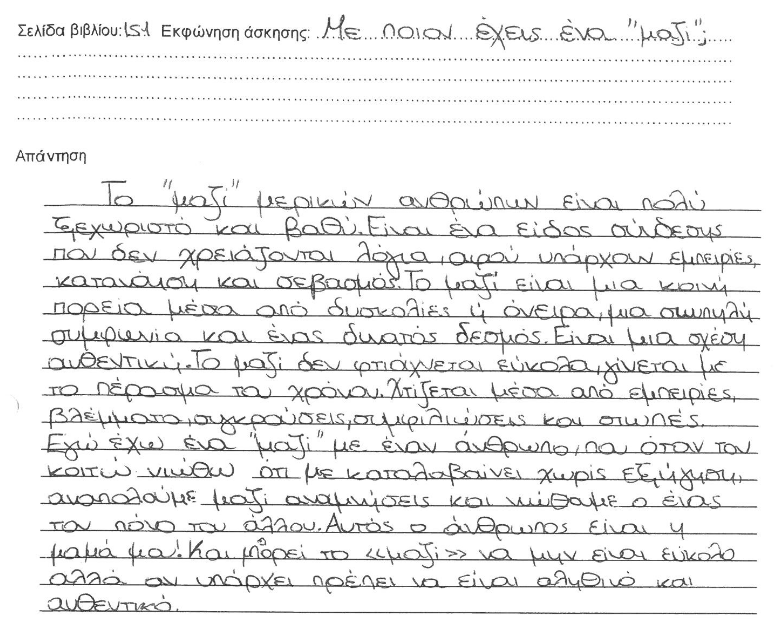 Σελίδα βιβλίου: 151 Εκφώνηση άσκησης: Με ποιον έχεις ένα "μαζί";
Απάντηση
Το "μαζί" μερικών ανθρώπων είναι πολύ
ξεχωριστό και βαθύ. Είναι ένα είδος σύνδεσης
που δεν χρειάζονται λόγια, αφού υπάρχουν εμπειρίες,
κατανόηση και σεβασμός. Το μαζί είναι μια κοινή
πορεία μέσα από δυσκολίες ή όνειρα, μια σιωπηλή
συμφωνία και ένας δυνατός δεσμός. Είναι μια σχέση
αυθεντική. Το μαζί δεν φτιάχνεται εύκολα, γίνεται με
το πέρασμα του χρόνου. Χτίζεται μέσα από εμπειρίες,
βλέμματα, συγκρούσεις, συμφιλιώσεις και σιωπές.
Εγώ έχω ένα "μαζί" με έναν άνθρωπο, που όταν τον
κοιτώ νιώθω ότι με καταλαβαίνει χωρίς εξήγηση,
αναπολούμε μαζί αναμνήσεις και νιώθουμε ο ένας
τον πόνο του άλλου. Αυτός ο άνθρωπος είναι η
μαμά μου! Και μπορεί το «μαζί» να μην είναι εύκολο
αλλά αν υπάρχει πρέπει να είναι αληθινό και
αυθεντικό.